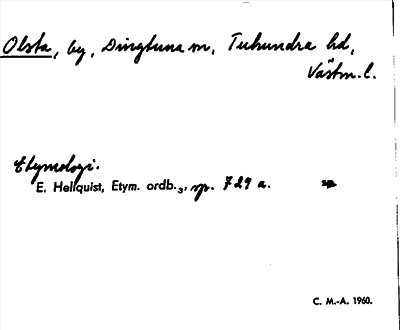 Olsta, by, Dingtuna sn, Tuhundra hd,
Västm. l.
Etymologi.
E. Hellquist, Etym. ordb.₃, sp. 729 a.
C. M.-A. 1960.